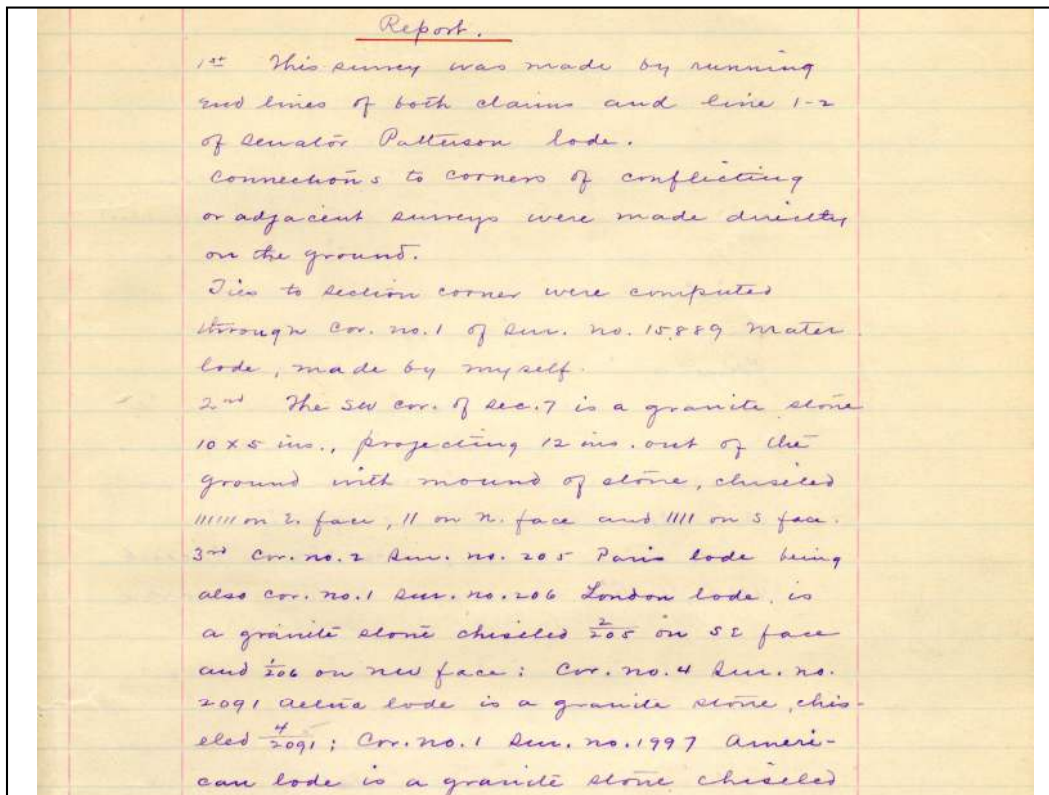 Report.
1st This survey was made by running
end lines of both claims and line 1-2
of Senator Patterson lode.
Connections to corners of conflicting
or adjacent surveys were made directly
on the ground.
Ties to section corner were computed
through Cor. no. 1 of Sur. no. 15,889 Mater
lode, made by myself.
2nd The SW cor. of Sec. 7 is a granite stone
10 x 5 ins., projecting 12 ins. out of the
ground with mound of stone, chiseled
111111 on E. face, 11 on N. face and 1111 on S face.
3rd Cor. no. 2 Sur. no. 205 Paris lode being
also cor. no. 1 Sur. no. 206 London lode, is
a granite stone chiseled 2/205 on SE face
and 1/206 on NW face; Cor. no. 4 Sur. no.
2091 Aetna lode is a granite stone, chis-
eled 4/2091; Cor. no. 1 Sur. no. 1997 Ameri-
can lode is a granite stone chiseled